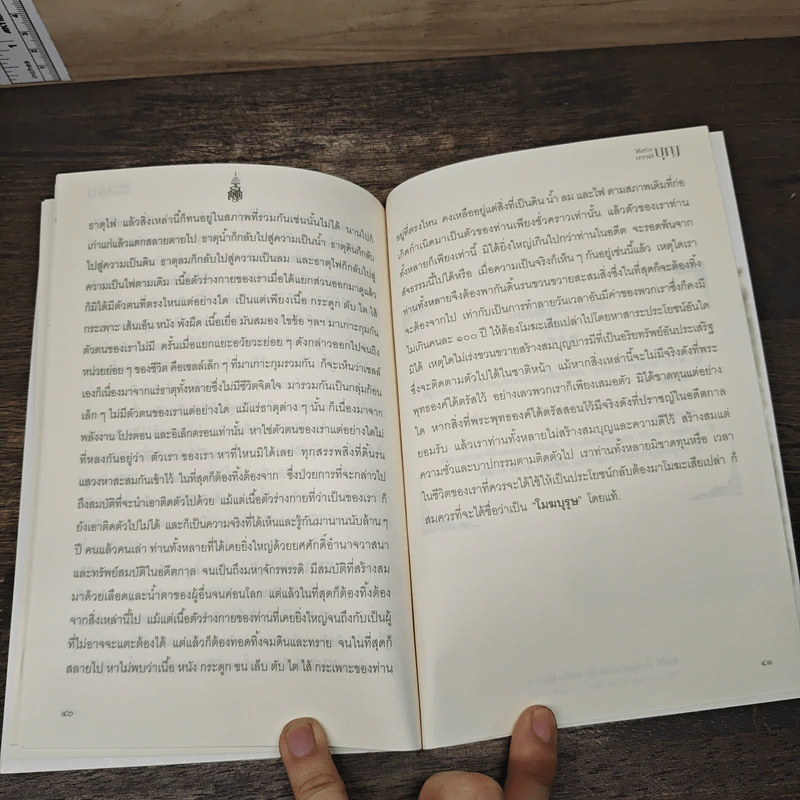 ธาตุไฟ แล้วสิ่งเหล่านี้ก็ทนอยู่ในสภาพที่รวมกันเช่นนั้นไม่ได้ นานไปก็
เก่าแก่แล้วแตกสลายตายไป ธาตุน้ำก็กลับไปสู่ความเป็นน้ำ ธาตุดินก็กลับ
ไปสู่ความเป็นดิน ธาตุลมก็กลับไปสู่ความเป็นลม และธาตุไฟก็กลับไปสู่
ความเป็นไฟตามเดิม เนื้อตัวร่างกายของเราเมื่อได้แยกส่วนออกมาดูแล้ว
ก็มิได้มีตัวตนที่ตรงไหนแต่อย่างใด เป็นแต่เพียงเนื้อ กระดูก ตับ ไต ไส้
กระเพาะ เส้นเอ็น หนัง พังผืด เนื้อเยื่อ มันสมอง ไขข้อ ฯลฯ มาเกาะกุมกัน
ตัวตนของเราไม่มี ครั้นเมื่อแยกแยะอวัยวะย่อย ๆ ดังกล่าวออกไปจนถึง
หน่วยย่อย ๆ ของชีวิต คือเซลล์เล็ก ๆ ที่มาเกาะกุมรวมกัน ก็จะเห็นว่าเซลล์
เองก็เนื่องมาจากแร่ธาตุทั้งหลายซึ่งไม่มีชีวิตจิตใจ มารวมกันเป็นกลุ่มก้อน
เล็ก ๆ ไม่มีตัวตนของเราแต่อย่างใด แม้แร่ธาตุต่าง ๆ นั้น ก็เนื่องมาจาก
พลังงาน โปรตอน และอิเล็กตรอนเท่านั้น หาใช่ตัวตนของเราแต่อย่างใดไม่
ที่หลงกันอยู่ว่า ตัวเรา ของเรา หาที่ไหนมิได้เลย ทุกสรรพสิ่งที่ดิ้นรน
แสวงหาสะสมกันเข้าไว้ ในที่สุดก็ต้องทิ้งต้องจาก ซึ่งป่วยการที่จะกล่าวไป
ถึงสมบัติที่จะนำเอาติดตัวไปด้วย แม้แต่เนื้อตัวร่างกายที่ว่าเป็นของเรา ก็
ยังเอาติดตัวไปไม่ได้ และก็เป็นความจริงที่ได้เห็นและรู้กันมานานนับล้าน ๆ
ปี คนแล้วคนเล่า ท่านทั้งหลายที่ได้เคยยิ่งใหญ่ด้วยยศศักดิ์อำนาจวาสนา
และทรัพย์สมบัติในอดีตกาล จนเป็นถึงมหาจักรพรรดิ มีสมบัติที่สร้างสม
มาด้วยเลือดและน้ำตาของผู้อื่นจนค่อนโลก แต่แล้วในที่สุดก็ต้องทิ้งต้อง
จากสิ่งเหล่านี้ไป แม้แต่เนื้อตัวร่างกายของท่านที่เคยยิ่งใหญ่จนถึงกับเป็นผู้
ที่ไม่อาจจะแตะต้องได้ แต่แล้วก็ต้องทอดทิ้งจมดินและทราย จนในที่สุดก็
สลายไป หาไม่พบว่าเนื้อ หนัง กระดูก ขน เล็บ ตับ ไต ไส้ กระเพาะของท่าน
๔๐
วิธีสร้าง
บารมี
บุญ
อยู่ที่ตรงไหน คงเหลืออยู่แต่สิ่งที่เป็นดิน น้ำ ลม และไฟ ตามสภาพเดิมที่ก่อ
เกิดกำเนิดมาเป็นตัวของท่านเพียงชั่วคราวเท่านั้น แล้วตัวของเราท่าน
ทั้งหลายก็เพียงเท่านี้ มิได้ยิ่งใหญ่เกินไปกว่าท่านในอดีต จะรอดพ้นจาก
สัจธรรมนี้ไปได้หรือ เมื่อความเป็นจริงก็เห็น ๆ กันอยู่เช่นนี้แล้ว เหตุใดเรา
ท่านทั้งหลายจึงต้องพากันดิ้นรนขวนขวายสะสมสิ่งซึ่งในที่สุดก็จะต้องทิ้ง
จะต้องจากไป เท่ากับเป็นการทำลายวันเวลาอันมีค่าของพวกเราซึ่งก็คงมี
ไม่เกินคนละ ๑๐๐ ปี ให้ต้องโมฆะเสียเปล่าไปโดยหาสาระประโยชน์อันใด
มิได้ เหตุใดไม่เร่งขวนขวายสร้างสมบุญบารมีที่เป็นอริยทรัพย์อันประเสริฐ
ซึ่งจะติดตามตัวไปได้ในชาติหน้า แม้หากสิ่งเหล่านี้จะไม่มีจริงดังที่พระ
พุทธองค์ได้ตรัสไว้ อย่างเลวพวกเราก็เพียงเสมอตัว มิได้ขาดทุนแต่อย่าง
ใด หากสิ่งที่พระพุทธองค์ได้ตรัสสอนไว้มีจริงดังที่ปราชญ์ในอดีตกาล
ยอมรับ แล้วเราท่านทั้งหลายไม่สร้างสมบุญและความดีไว้ สร้างสมแต่
ความชั่วและบาปกรรมตามติดตัวไป เราท่านทั้งหลายมิขาดทุนหรือ เวลา
ในชีวิตของเราที่ควรจะได้ใช้ให้เป็นประโยชน์กลับต้องมาโมฆะเสียเปล่า ก็
สมควรที่จะได้ชื่อว่าเป็น "โมฆบุรุษ" โดยแท้.
๔๑